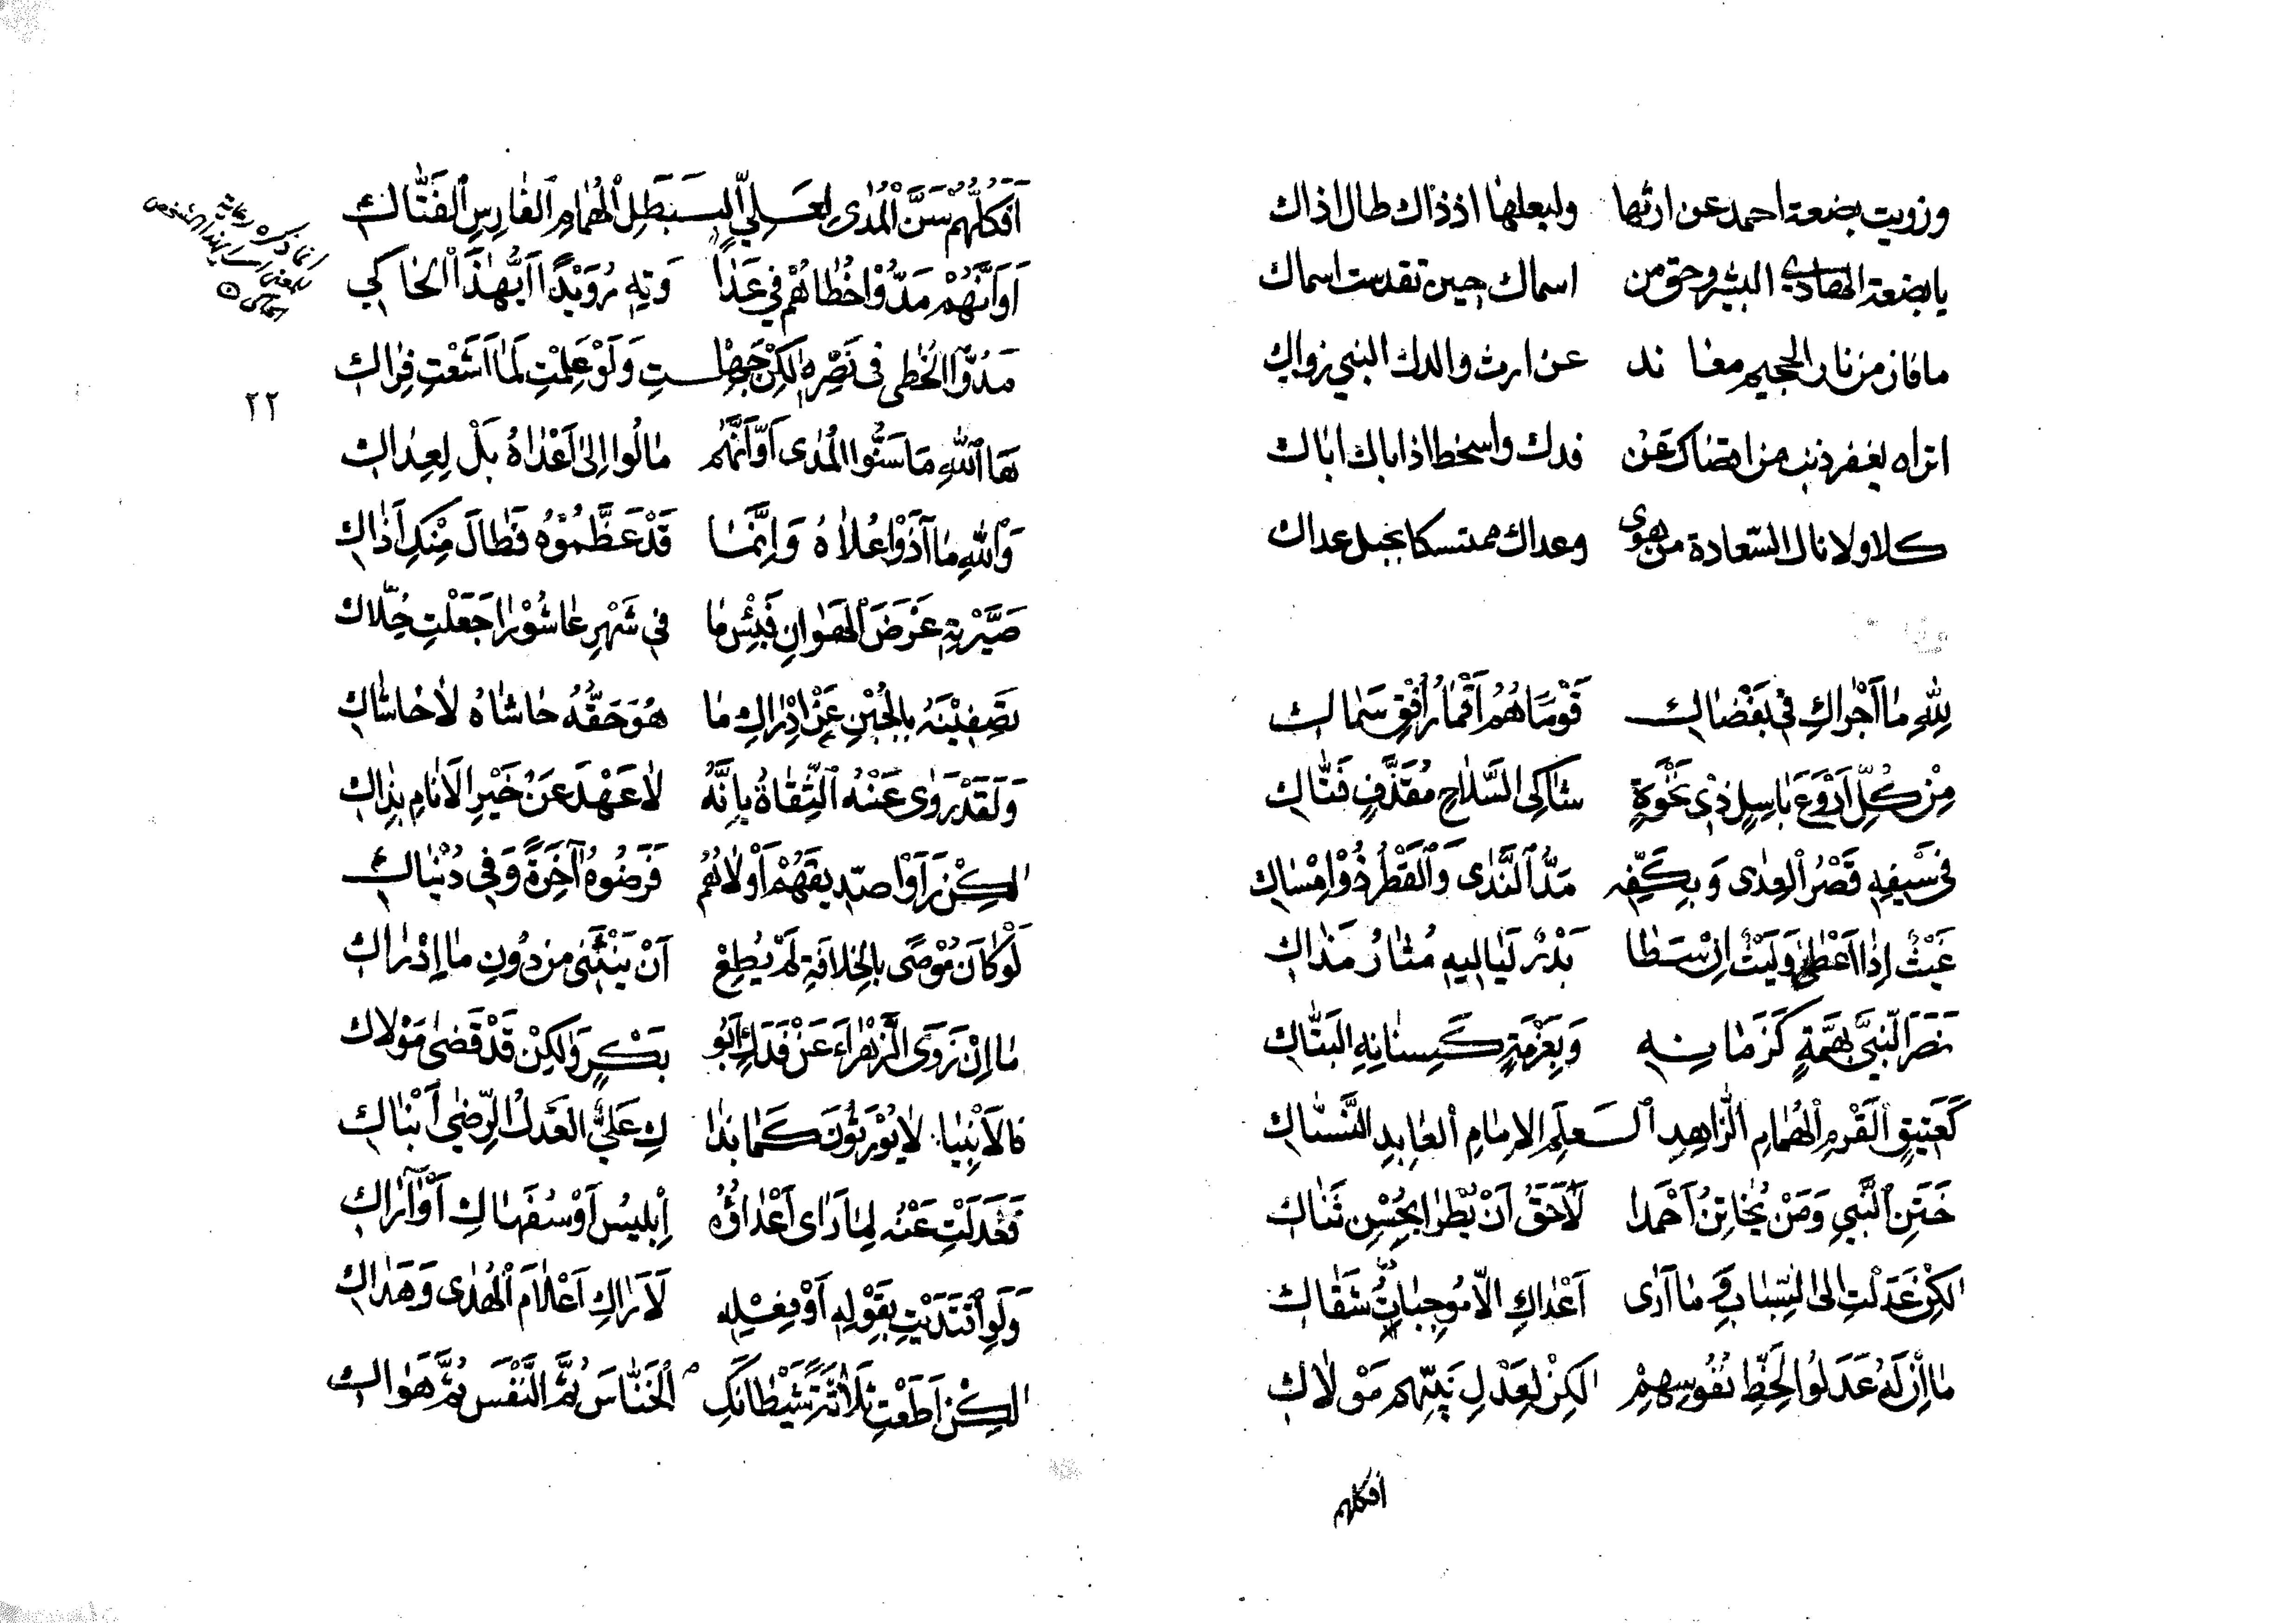 وزويت بضعة احمد عن ارثها ولبعلها اذ ذاك طال اذاك
يا بضعة الهادي البشير وحق من اسماك حين تقدست اسماك
ما فاز من نار الجحيم معاند عن ارث والدك النبي زواك
اتراه يغفر ذنب من اقصاك عن فدك واسخطا اذ اباك اباك
كلا ولا نال السّعادة من هوى وعداك ممتسكا بحبل عداك
لِلّٰهِ مَا أَجْرَاكِ فِي بَغْضَاكِ قَوْمًا هُمُ أَقْمَارُ أُفْقِ سَمَاكِ
مِنْ كُلِّ أَرْوَعَ بَاسِلٍ ذِي نَخْوَةٍ شَاكِي السَّلَاحِ مُقَذَّفٍ فَتَّاكِ
فِي سَيْفِهِ قَصْرُ الْعِدَى وَبِكَفِّهِ مَدُّ النَّدَى وَالْقَطْرُ ذُو إِمْسَاكِ
غَيْثٌ إِذَا أَعْطَى وَلَيْثٌ إِنْ سَطَا بَدْرٌ لَيَالِيهِ مُثَارُ مَذَاكِ
نَصَرَ النَّبِيَّ بِهِمَّةٍ كَزَمَانِهِ وَبِعَزْمَةٍ كَسِنَانِهِ الْبَتَّاكِ
كَعَتِيقٍ الْقَرْمِ الْهُمَامِ الزَّاهِدِ الْعَلَمِ الْإِمَامِ الْعَابِدِ النَّسَّاكِ
خَتَنِ النَّبِيِّ وَمَنْ يُخَاتِنُ أَحْمَدَا لَأَحَقُّ أَنْ يُطْرَا بِحُسْنِ ثَنَاكِ
لكِنْ عَدَلْتِ الى السِّبَابِ وَمَا أَرَى أَعْدَاكِ الّا مُوجِبَاتِ شَقَاكِ
مَا إِنْ لَهُ عَدَلُوا لِحَظِّ نُفُوسِهِمْ لكِنْ لِعَدْلِ نَبِيِّهِمْ مَوْلَاكِ
أفكلهم
أَفَكُلُّهُمْ سَنَّ الْمُدَى لِعَلِيٍّ الْبَطَلِ الْهُمَامِ الْفَارِسِ الْفَتَّاكِ
أَوَ أَنَّهُمْ مَدُّوا خُطَاهُمْ فِي عَدَا وَتِهِ رُوَيْدًا أَيُّهٰذَا الْحَاكِي
مَدُّوا الْخُطَى فِي نَصْرِهِ لكِنْ جَهِلْتِ وَلَوْ عَلِمْتِ لَمَا أَشَعْتِ فِرَاكِ
هَا اللّٰهِ مَا سَنُّوا الْمُدَى أَوْ أَنَّهُمْ مَالُوا إِلَى أَعْدَاهُ بَلْ لِعِدَاكِ
وَاللّٰهِ مَا آذَوْا عُلَاهُ وَإِنَّمَا قَدْ عَظَّمُوهُ فَطَالَ مِنْكِ أَذَاكِ
صَيَّرْتِهِ غَرَضَ الْهَوَانِ فَبِئْسَ مَا فِي شَهْرِ عَاشُورَا جَعَلْتِ حُلَاكِ
تَصِفِينَهُ بِالْجُبْنِ عَنْ إِدْرَاكِ مَا هُوَ حَقُّهُ حَاشَاهُ لَا حَاشَاكِ
وَلَقَدْ رَوَى عَنْهُ الثِّقَاةُ بِأَنَّهُ لَا عَهْدَ عَنْ خَيْرِ الْأَنَامِ بِذَاكِ
لكِنْ رَأَوْا صِدِّيقَهُمْ أَوْلَاهُمُ فَرَضُوهُ آخِرَةً وَفِي دُنْيَاكِ
لَوْ كَانَ مُوصًى بِالْخِلَافَةِ لَمْ يُطِعْ أَنْ يَنْثَنِي مِنْ دُونِ مَا إِدْرَاكِ
مَا إِنْ زَوَى الزَّهْرَاءَ عَنْ فَدَكٍ أَبُو بَكْرٍ وَلكِنْ قَدْ قَضَى مَوْلَاكِ
فَالْأَنْبِيَا لَا يُورَثُونَ كَمَا بِذَا كِ عَلِيٌّ الْعَدْلُ الرِّضِيُّ أَنْبَاكِ
فَعَدَلْتِ عَنْهُ لِمَا رَأَى أَعْدَاؤُهُ إِبْلِيسُ أَوْ سُفَهَاكِ أَوْ آرَاكِ
وَلَوِ اقْتَدَيْتِ بِقَوْلِهِ أَوْ فِعْلِهِ لَأَرَاكِ أَعْلَامَ الْهُدَى وَهَدَاكِ
لكِنْ أَطَعْتِ ثَلَاثَةً شَيْطَانَكِ الْخَنَّاسَ ثُمَّ النَّفْسَ ثُمَّ هَوَاكِ
٢٢